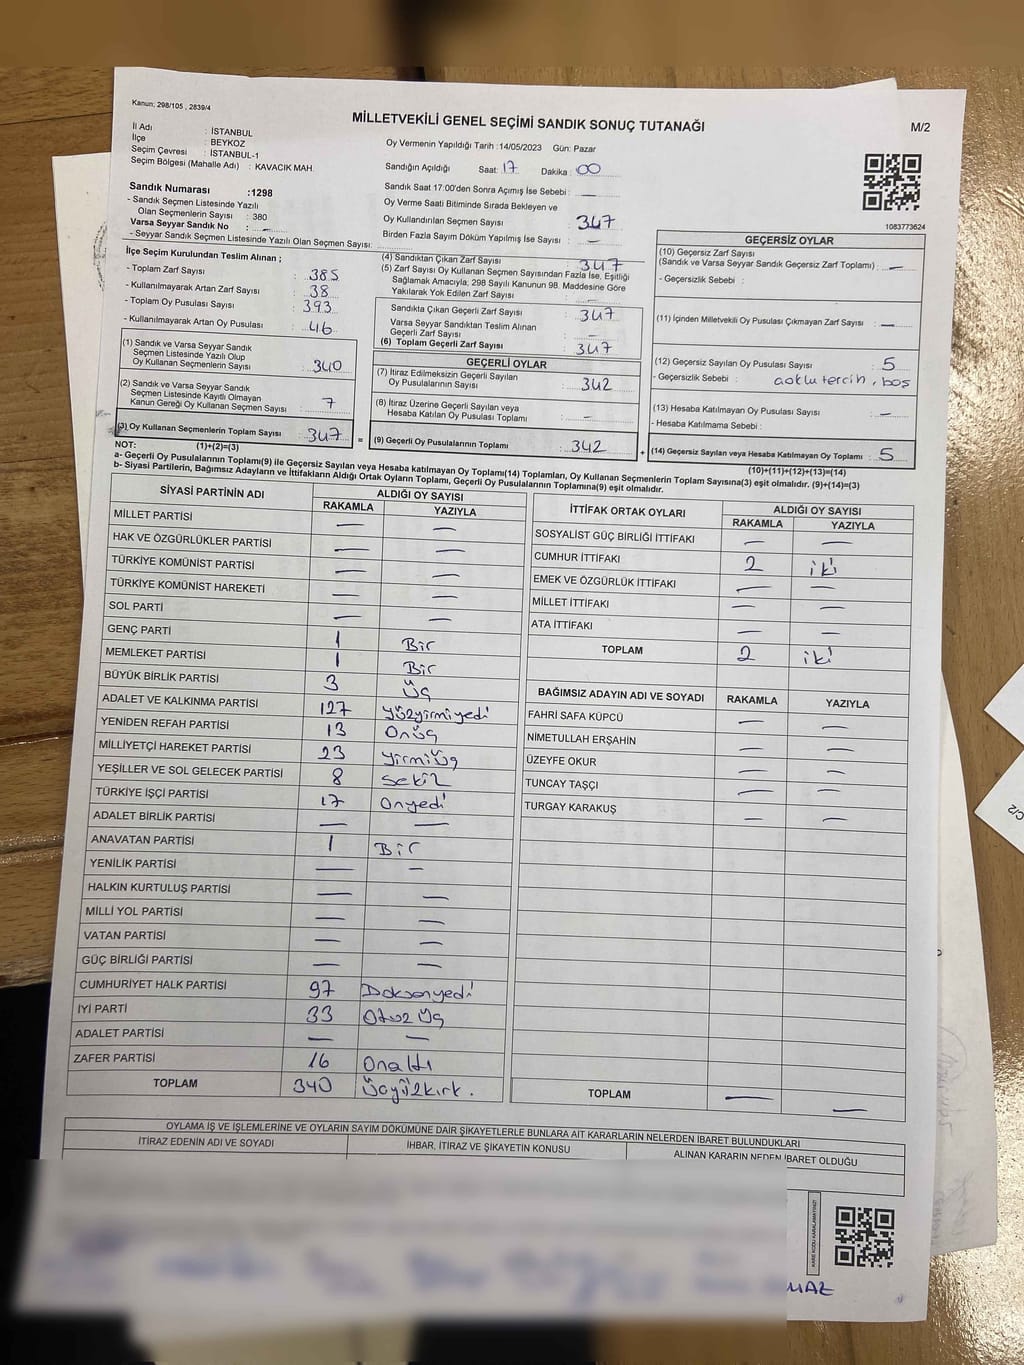 Kanun; 298/105 , 2839/4
MİLLETVEKİLİ GENEL SEÇİMİ SANDIK SONUÇ TUTANAĞI
M/2
İl Adı : İSTANBUL
İlçe : BEYKOZ
Seçim Çevresi : İSTANBUL-1
Seçim Bölgesi (Mahalle Adı) : KAVACIK MAH.
Sandık Numarası :1298
- Sandık Seçmen Listesinde Yazılı
Olan Seçmenlerin Sayısı : 380
Varsa Seyyar Sandık No : —
- Seyyar Sandık Seçmen Listesinde Yazılı Olan Seçmen Sayısı:
Oy Vermenin Yapıldığı Tarih :14/05/2023 Gün: Pazar
Sandığın Açıldığı Saat: 17 Dakika : 00
Sandık Saat 17:00'den Sonra Açımış İse Sebebi : —
Oy Verme Saati Bitiminde Sırada Bekleyen ve
Oy Kullandırılan Seçmen Sayısı : 347
Birden Fazla Sayım Döküm Yapılmış İse Sayısı : —
1083773624
İlçe Seçim Kurulundan Teslim Alınan ;
- Toplam Zarf Sayısı : 385
- Kullanılmayarak Artan Zarf Sayısı : 38
- Toplam Oy Pusulası Sayısı : 393
- Kullanılmayarak Artan Oy Pusulası : 46
(1) Sandık ve Varsa Seyyar Sandık
Seçmen Listesinde Yazılı Olup
Oy Kullanan Seçmenlerin Sayısı : 340
(2) Sandık ve Varsa Seyyar Sandık
Seçmen Listesinde Kayıtlı Olmayan
Kanun Gereği Oy Kullanan Seçmen Sayısı : 7
(3) Oy Kullanan Seçmenlerin Toplam Sayısı : 347
(1)+(2)=(3)
(4) Sandıktan Çıkan Zarf Sayısı : 347
(5) Zarf Sayısı Oy Kullanan Seçmen Sayısından Fazla İse, Eşitliği
Sağlamak Amacıyla, 298 Sayılı Kanunun 98. Maddesine Göre
Yakılarak Yok Edilen Zarf Sayısı : —
Sandıkta Çıkan Geçerli Zarf Sayısı : 347
Varsa Seyyar Sandıktan Teslim Alınan
Geçerli Zarf Sayısı : —
(6) Toplam Geçerli Zarf Sayısı : 347
GEÇERLİ OYLAR
(7) İtiraz Edilmeksizin Geçerli Sayılan
Oy Pusulalarının Sayısı : 342
(8) İtiraz Üzerine Geçerli Sayılan veya
Hesaba Katılan Oy Pusulası Toplamı : —
= (9) Geçerli Oy Pusulalarının Toplamı : 342
GEÇERSİZ OYLAR
(10) Geçersiz Zarf Sayısı
(Sandık ve Varsa Seyyar Sandık Geçersiz Zarf Toplamı) : —
- Geçersizlik Sebebi :
(11) İçinden Milletvekili Oy Pusulası Çıkmayan Zarf Sayısı : —
(12) Geçersiz Sayılan Oy Pusulası Sayısı : 5
- Geçersizlik Sebebi : çoklu tercih, boş
(13) Hesaba Katılmayan Oy Pusulası Sayısı : —
- Hesaba Katılmama Sebebi :
+ (14) Geçersiz Sayılan veya Hesaba Katılmayan Oy Toplamı : 5
(10)+(11)+(12)+(13)=(14)
NOT:
a- Geçerli Oy Pusulalarının Toplamı(9) ile Geçersiz Sayılan veya Hesaba katılmayan Oy Toplamı(14) Toplamları, Oy Kullanan Seçmenlerin Toplam Sayısına(3) eşit olmalıdır. (9)+(14)=(3)
b- Siyasi Partilerin, Bağımsız Adayların ve İttifakların Aldığı Ortak Oyların Toplamı, Geçerli Oy Pusulalarının Toplamına(9) eşit olmalıdır.
SİYASİ PARTİNİN ADI ALDIĞI OY SAYISI
RAKAMLA YAZIYLA
MİLLET PARTİSİ — —
HAK VE ÖZGÜRLÜKLER PARTİSİ — —
TÜRKİYE KOMÜNİST PARTİSİ — —
TÜRKİYE KOMÜNİST HAREKETİ — —
SOL PARTİ — —
GENÇ PARTİ 1 Bir
MEMLEKET PARTİSİ 1 Bir
BÜYÜK BİRLİK PARTİSİ 3 Üç
ADALET VE KALKINMA PARTİSİ 127 yüzyirmiyedi
YENİDEN REFAH PARTİSİ 13 Onüç
MİLLİYETÇİ HAREKET PARTİSİ 23 yirmiüç
YEŞİLLER VE SOL GELECEK PARTİSİ 8 sekiz
TÜRKİYE İŞÇİ PARTİSİ 17 Onyedi
ADALET BİRLİK PARTİSİ — —
ANAVATAN PARTİSİ 1 Bir
YENİLİK PARTİSİ — —
HALKIN KURTULUŞ PARTİSİ — —
MİLLİ YOL PARTİSİ — —
VATAN PARTİSİ — —
GÜÇ BİRLİĞİ PARTİSİ — —
CUMHURİYET HALK PARTİSİ 97 Doksanyedi
İYİ PARTİ 33 Otuz üç
ADALET PARTİSİ — —
ZAFER PARTİSİ 16 Onaltı
TOPLAM 340 Üçyüzkırk.
İTTİFAK ORTAK OYLARI ALDIĞI OY SAYISI
RAKAMLA YAZIYLA
SOSYALİST GÜÇ BİRLİĞİ İTTİFAKI — —
CUMHUR İTTİFAKI 2 iki
EMEK VE ÖZGÜRLÜK İTTİFAKI — —
MİLLET İTTİFAKI — —
ATA İTTİFAKI — —
TOPLAM 2 iki
BAĞIMSIZ ADAYIN ADI VE SOYADI RAKAMLA YAZIYLA
FAHRİ SAFA KÜPCÜ — —
NİMETULLAH ERŞAHİN — —
ÜZEYFE OKUR — —
TUNCAY TAŞÇI — —
TURGAY KARAKUŞ — —
TOPLAM — —
OYLAMA İŞ VE İŞLEMLERİNE VE OYLARIN SAYIM DÖKÜMÜNE DAİR ŞİKAYETLERLE BUNLARA AİT KARARLARIN NELERDEN İBARET BULUNDUKLARI
İTİRAZ EDENİN ADI VE SOYADI İHBAR, İTİRAZ VE ŞİKAYETİN KONUSU ALINAN KARARIN NEDEN İBARET OLDUĞU
KARE KODU KARALAMAYINIZ!
MAZ
C/2